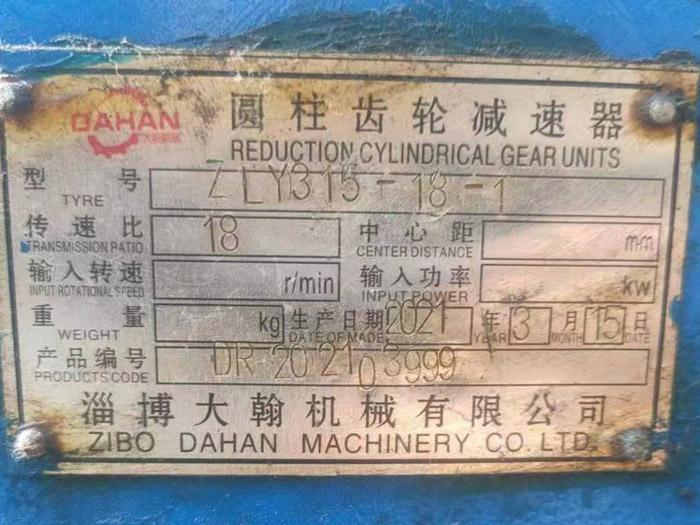 DAHAN 圆柱齿轮减速器
REDUCTION CYLINDRICAL GEAR UNITS
型 号 ZLY315-18-1
TYRE
传速比 18 中心距 mm
TRANSMISSION RATIO CENTER DISTANCE
输入转速 r/min 输入功率 kw
INPUT ROTATIONAL SPEED INPUT POWER
重 量 kg 生产日期 2021 年 3 月 15 日
WEIGHT DATE OF MADE YEAR MONTH DATE
产品编号 DR-202103999
PRODUCTS CODE
淄博大翰机械有限公司
ZIBO DAHAN MACHINERY CO. LTD.